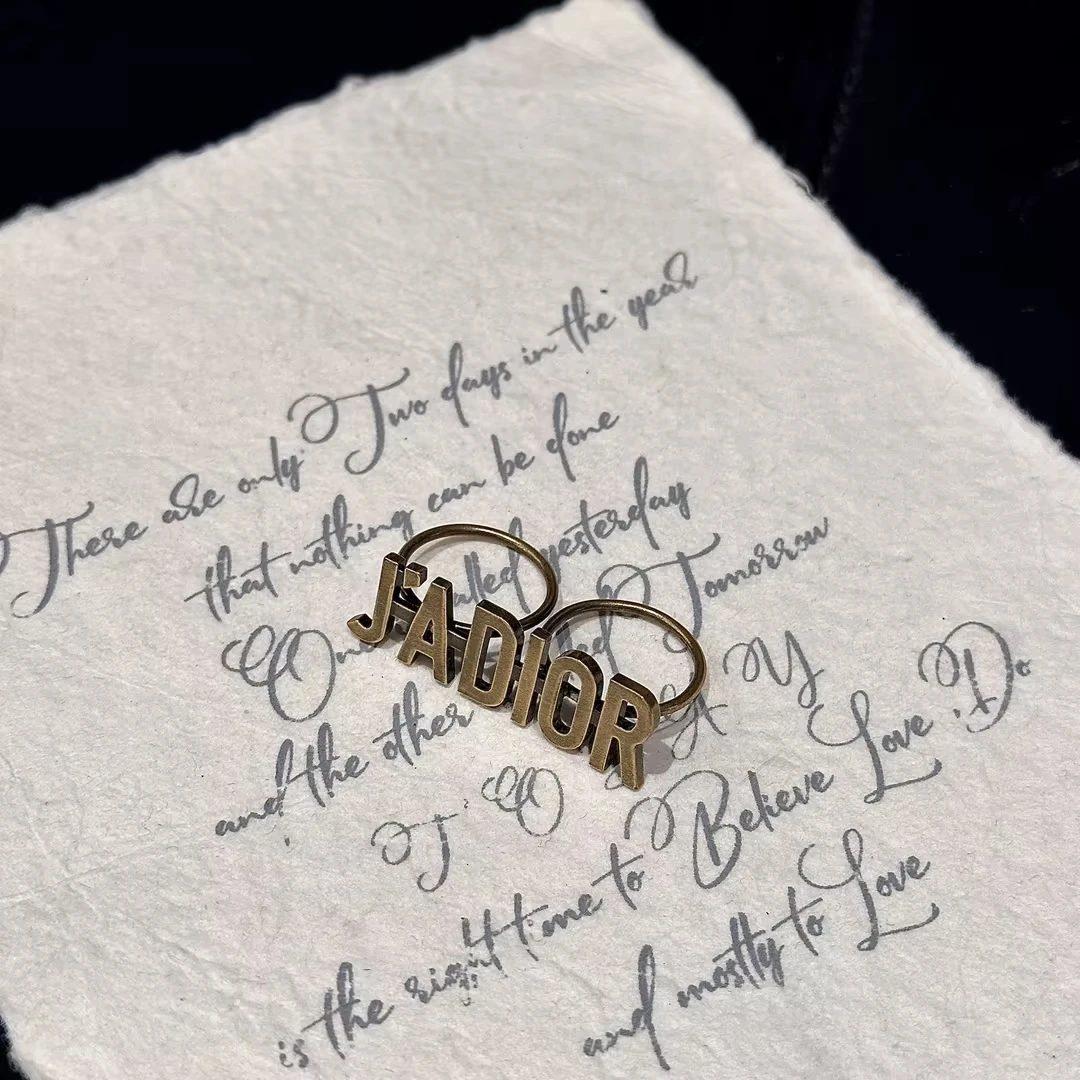 There are only Two days in the year
that nothing can be done
One called yesterday
and the other called Tomorrow
T O D A Y
is the right time to Believe Love Do
and mostly to Love
J'ADIOR